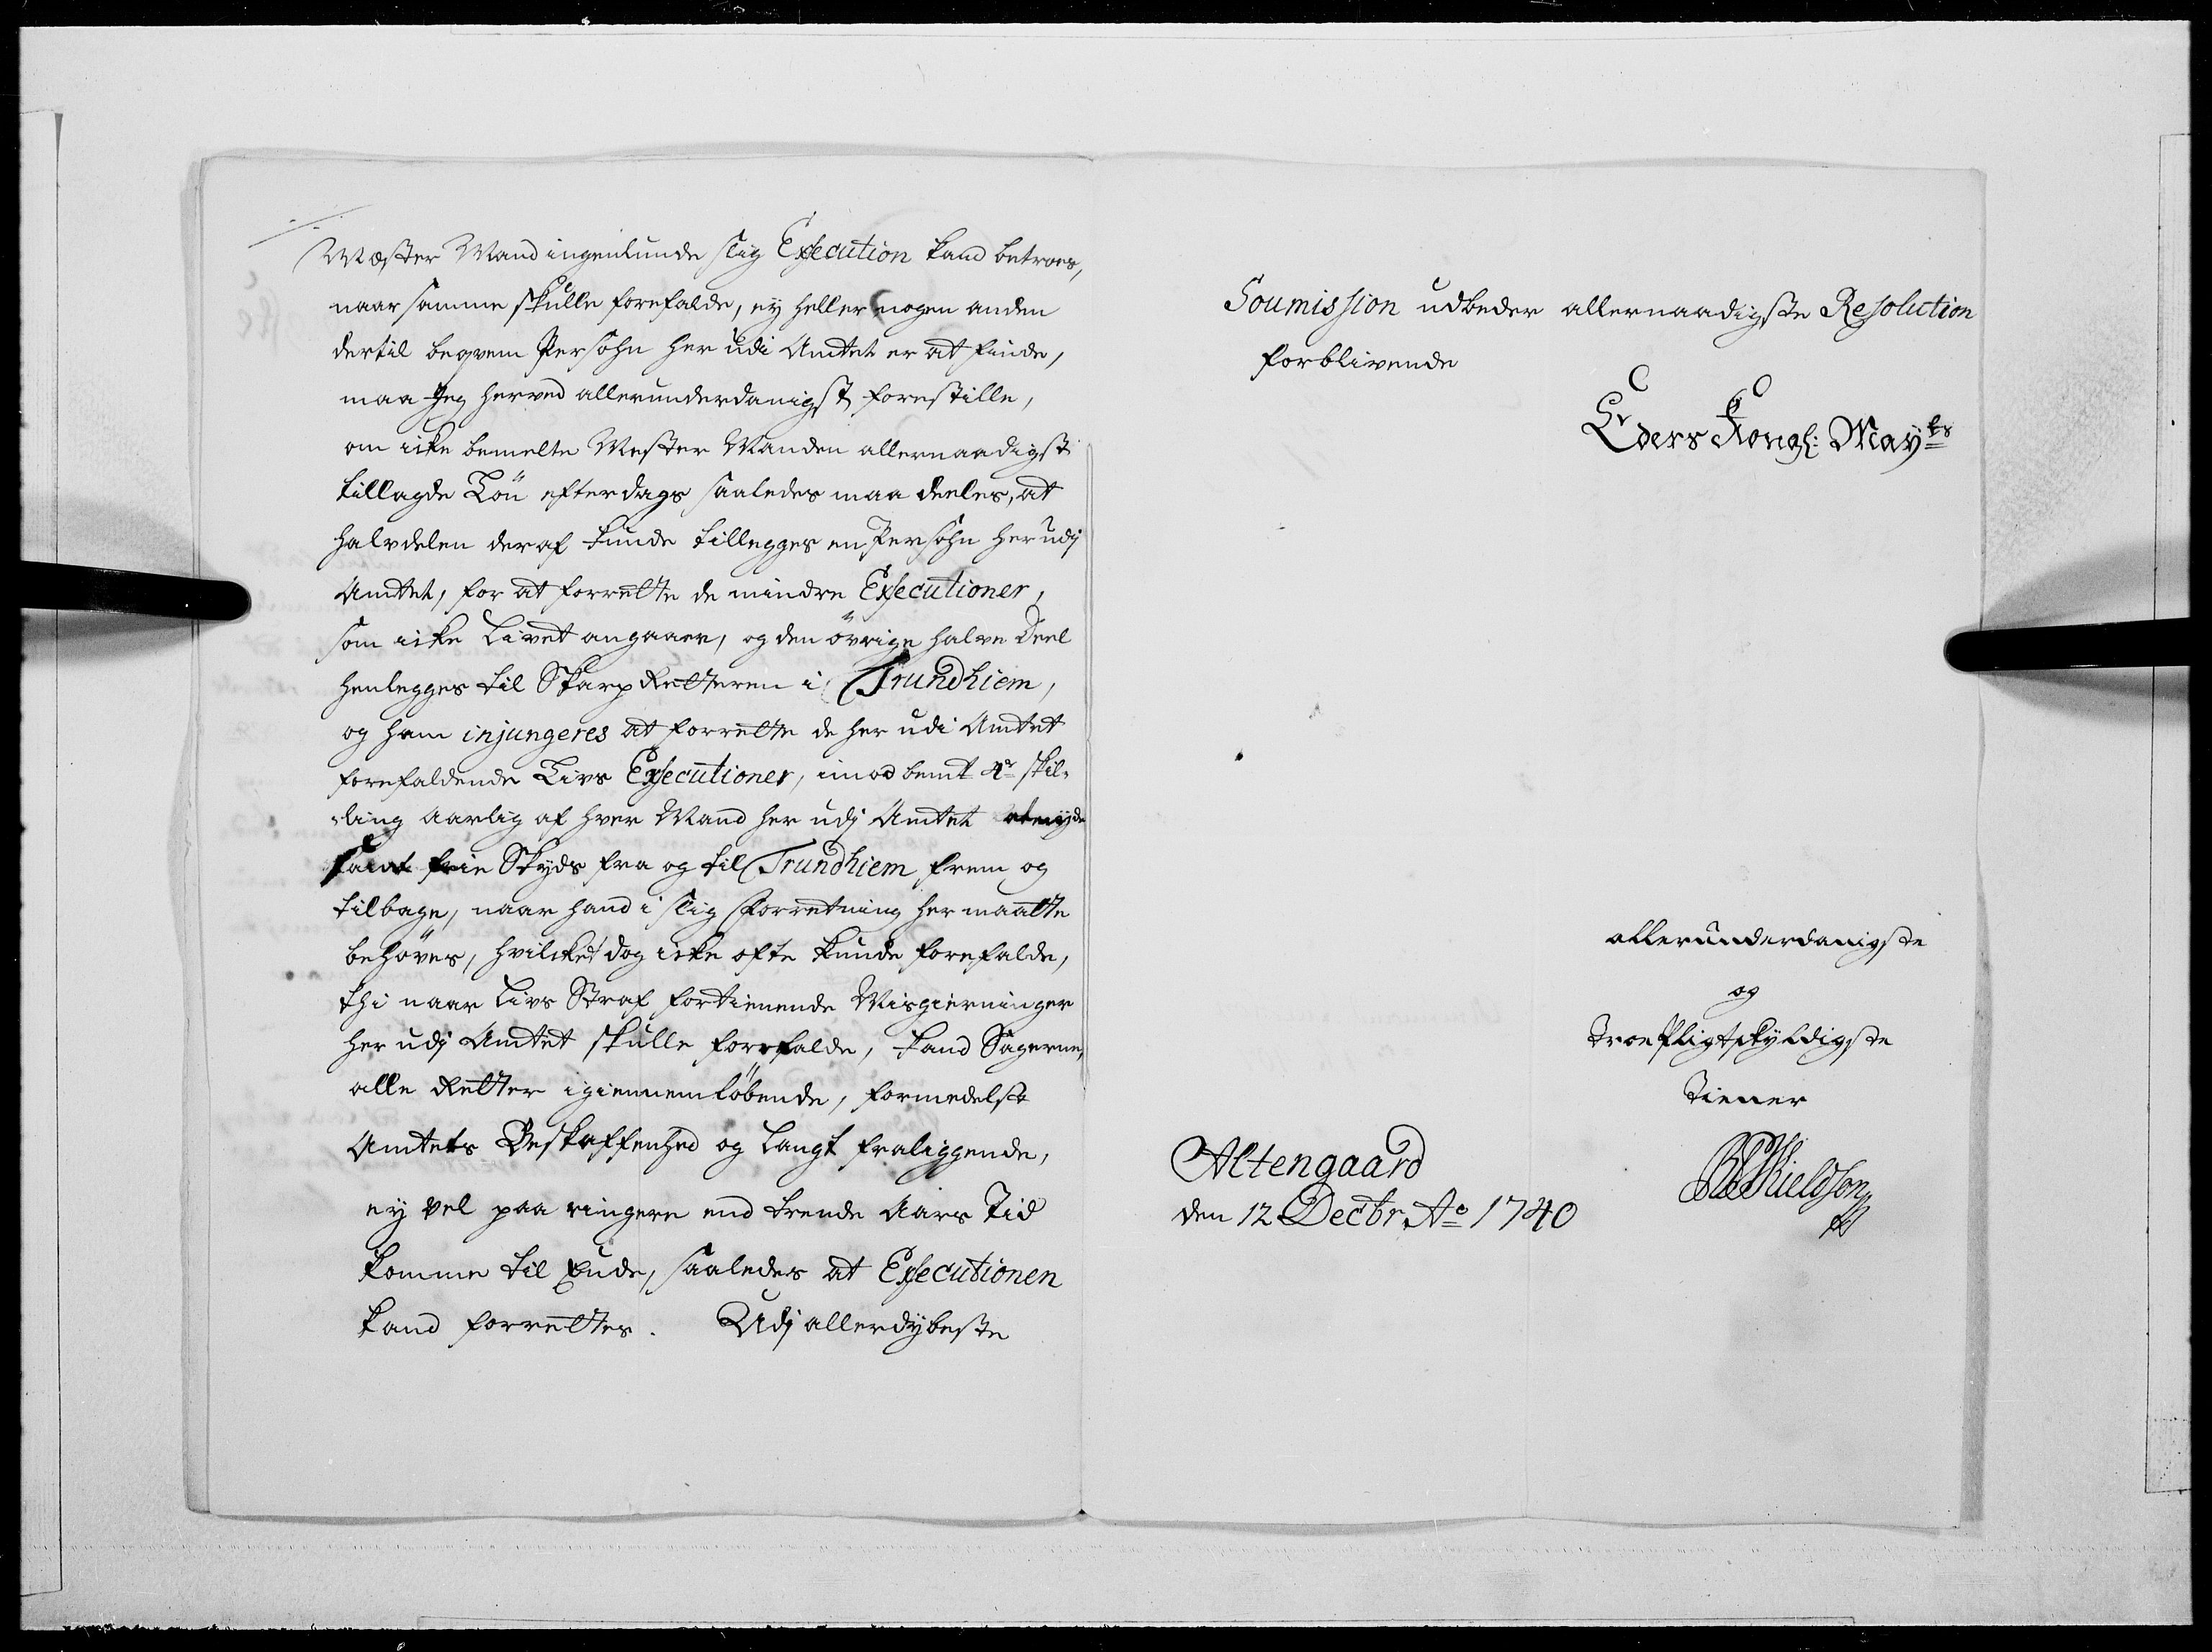 Mester Mand ingenlunde slig Execution kand betroes,
naar samme skulle forefalde, ey heller nogen anden
dertil beqvem Persohn her udi Amtet er at finde,
maa Jeg herved allerunderdanigst forestille,
om icke bemelte Mester Manden allernaadigst
tillagde Lön efterdags saaledes maa deeles, at
halvdelen deraf kunde tillegges en Persohn her udj
Amtet, for at forrette de mindre Executioner,
som icke Livet angaaer, og den övrige halve Deel
henlegges til SkarpRetteren i Trundhiem,
og ham injungeres at forrette de her udi Amtet
forefaldende Livs Executioner, imod bemt 4r skil-
-ling aarlig af hver Mand her udj Amtet at nyde
samt frie Skyds fra og til Trundhiem frem og
tilbage, naar hand i slig Forretning her maatte
behöves, hvilcket dog icke ofte kunde forefalde,
thi naar Livs Straf fortienende Misgierninger
her udj Amtet skulle forefalde, kand Sagerne,
alle Retter igiennemløbende, formedelst
Amtets Beskaffenhed og langt fraliggende,
ey vel paa ringere end trende Aars Tid
komme til Ende, saaledes at Executionen
kand forrettes. Udj allerdybeste
Soumission udbeder allernaadigste Resolution
forblivende
Eders Kongl: Mayts
allerunderdanigste
og
troepligtskyldigste
tiener
Altengaard
den 12 Decbr. Ao 1740
Kieldson